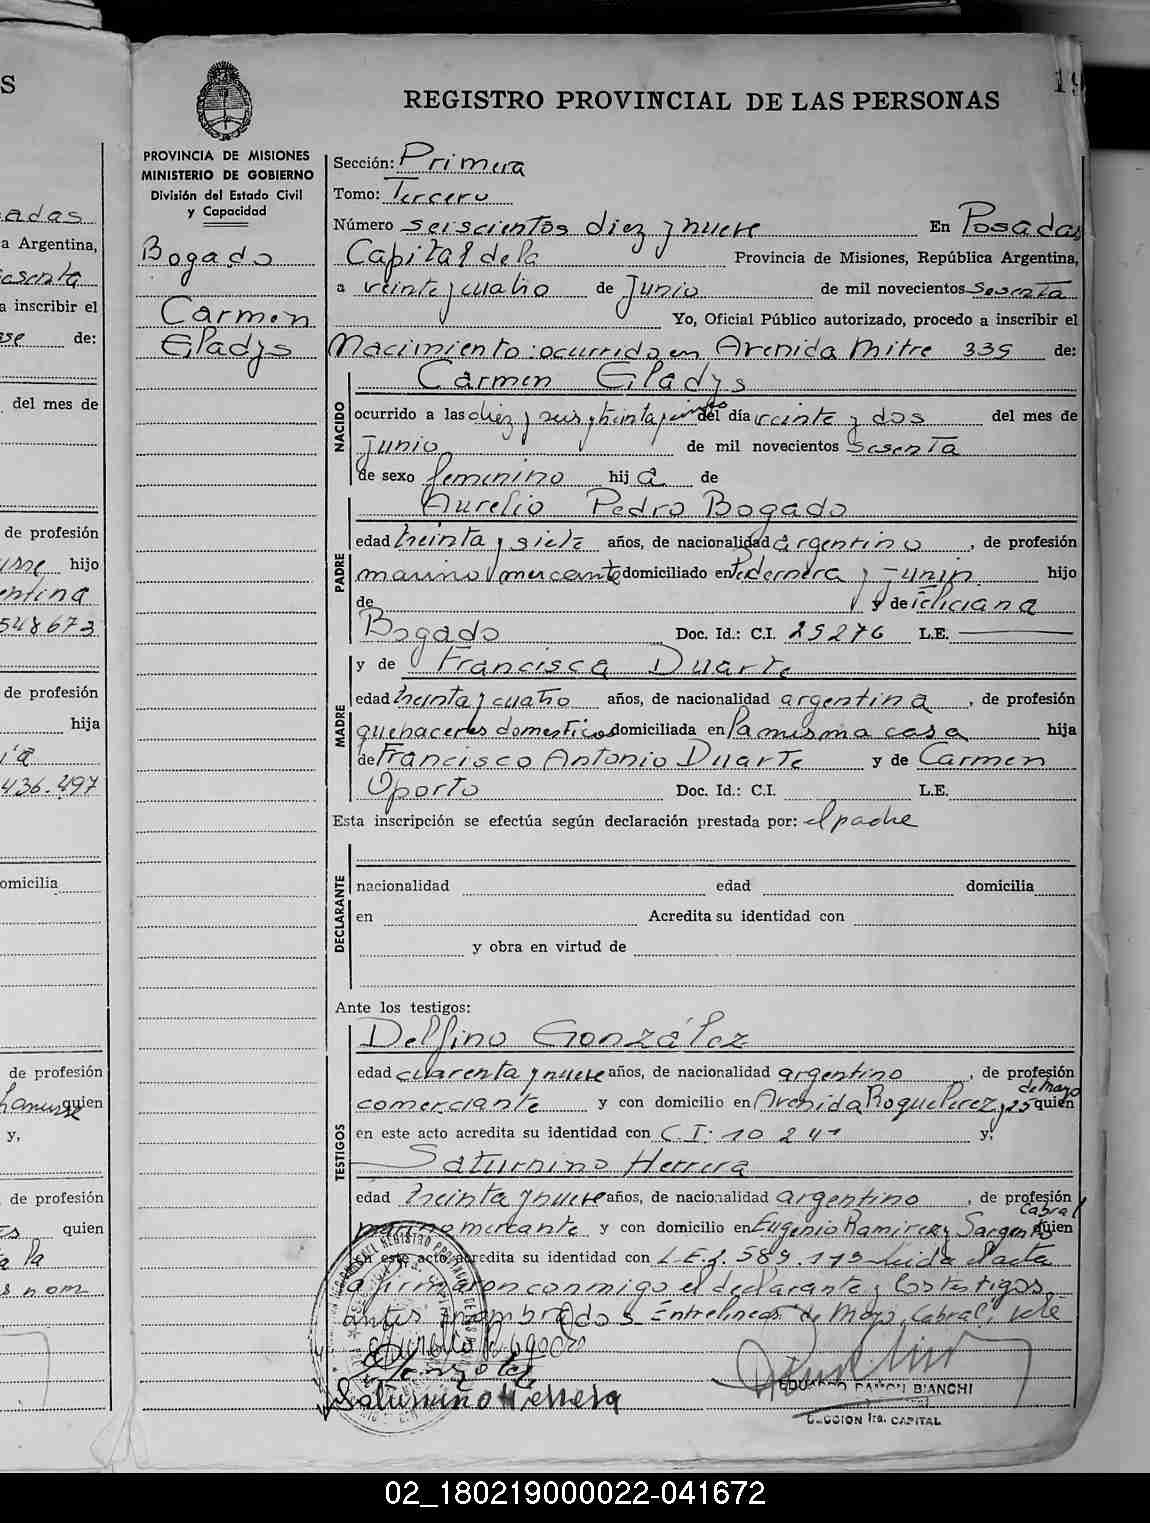 S
adas
a Argentina,
esenta
a inscribir el
de:
del mes de
de profesión
hijo
entina
548673
de profesión
hija
436.497
omicilia
de profesión
quien
y,
de profesión
quien
19
REGISTRO PROVINCIAL DE LAS PERSONAS
PROVINCIA DE MISIONES
MINISTERIO DE GOBIERNO
División del Estado Civil
y Capacidad
Bogado
Carmen
Gladys
Sección: Primera
Tomo: Tercero
Número seiscientos diez y nueve En Posadas
Capital de la Provincia de Misiones, República Argentina,
a veinte y cuatro de Junio de mil novecientos sesenta
Yo, Oficial Público autorizado, procedo a inscribir el
Nacimiento: ocurrido en Avenida Mitre 335 de:
Carmen Gladys
NACIDO
ocurrido a las diez y seis y treinta del día veinte y dos del mes de
Junio de mil novecientos sesenta
de sexo femenino hij a de
Aurelio Pedro Bogado
PADRE
edad treinta y siete años, de nacionalidad argentino, de profesión
marino mercante domiciliado en Pedernera y Junin hijo
de y de Feliciana
Bogado Doc. Id.: C.I. 25276 L.E.
y de Francisca Duarte
MADRE
edad treinta y cuatro años, de nacionalidad argentina, de profesión
quehaceres domesticos domiciliada en la misma casa hija
de Francisco Antonio Duarte y de Carmen
Oporto Doc. Id.: C.I. L.E.
Esta inscripción se efectúa según declaración prestada por: el padre
DECLARANTE
nacionalidad edad domicilia
en Acredita su identidad con
y obra en virtud de
Ante los testigos:
TESTIGOS
Delfino González
edad cuarenta y nueve años, de nacionalidad argentino, de profesión
de Mayo
comerciante y con domicilio en Avenida Roque Perez y 25 quien
en este acto acredita su identidad con C.I. 10241 y,
Saturnino Herrera
edad treinta y nueve años, de nacionalidad argentino, de profesión
Cabral
marino mercante y con domicilio en Eugenio Ramirez y Sargento quien
en este acto acredita su identidad con L.E. 2.589.175 Leida el acta
la firmaron conmigo el declarante y los testigos
antes nombrados Entrelineas: "de Mayo, Cabral", vale
Saturnino Herrera
EDUARDO RAMON BIANCHI
SECCION 1ra. CAPITAL
02_180219000022-041672